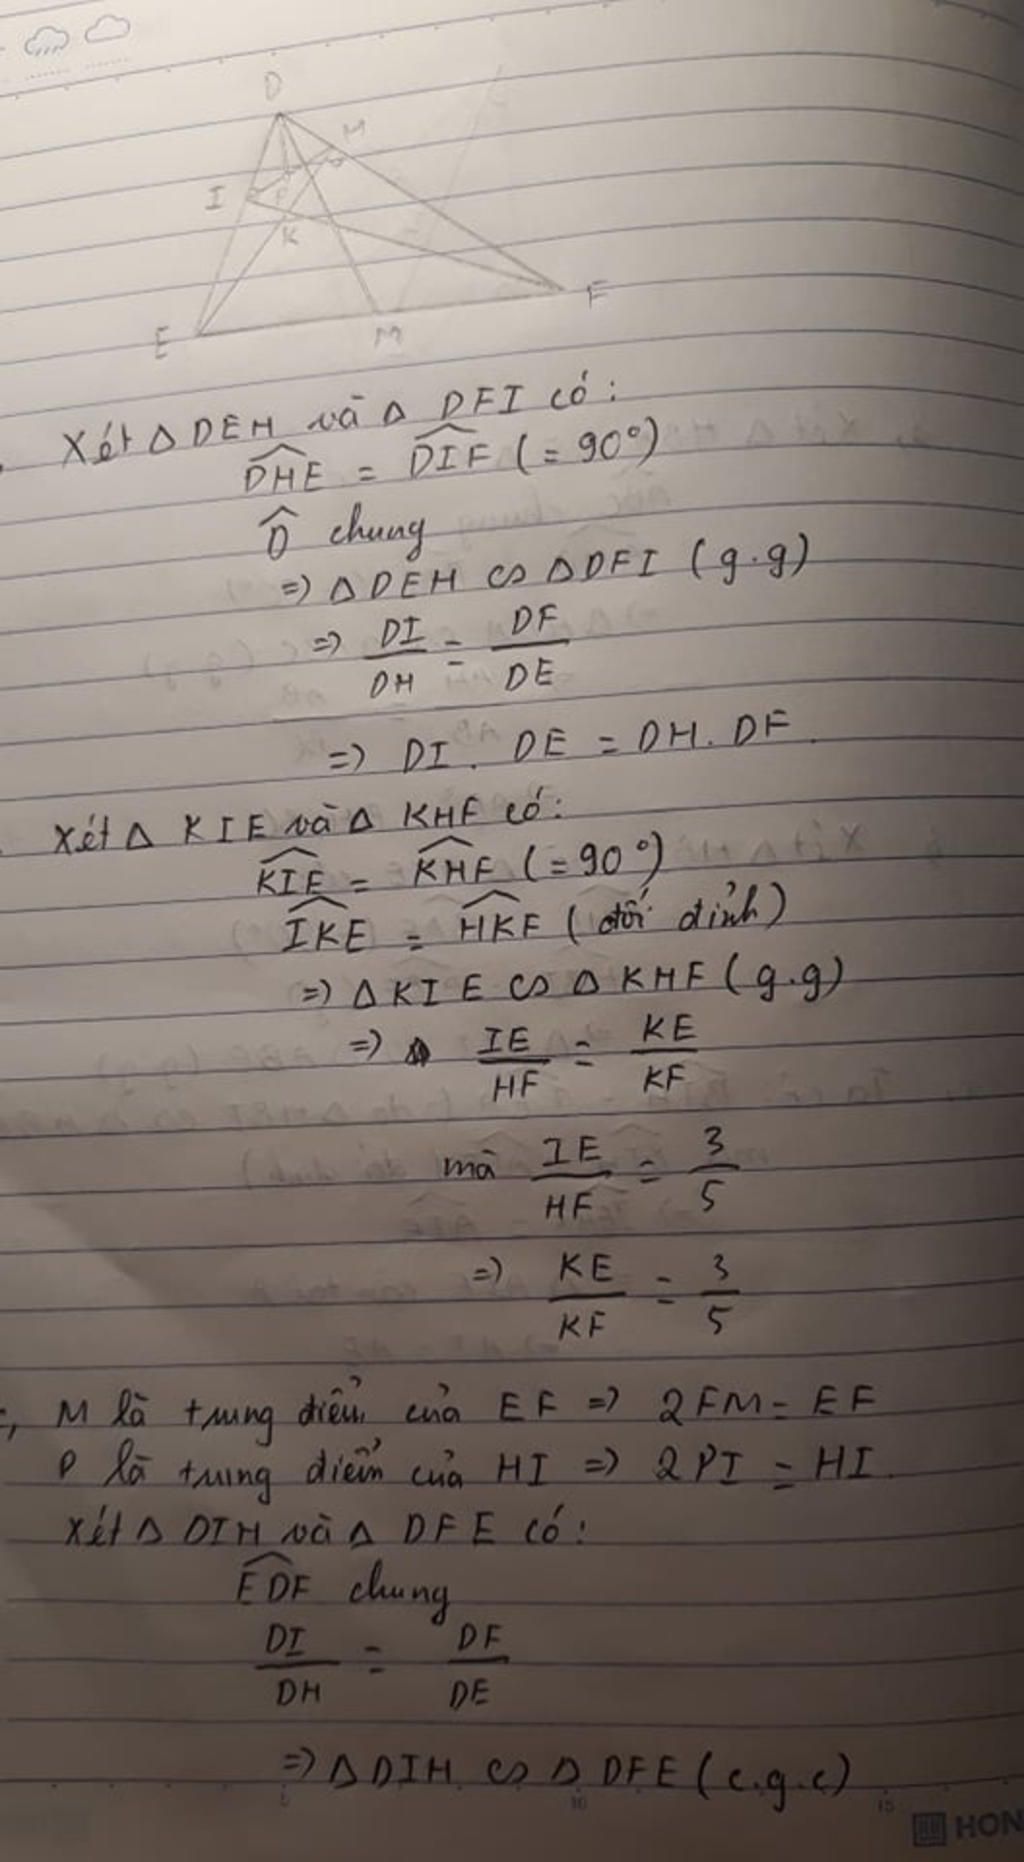 D
H
I
P
K
E
M
F
Xét Δ DEH và Δ DFI có:
$\widehat{DHE}$ = $\widehat{DIF}$ (= 90°)
$\widehat{D}$ chung
=> Δ DEH ∽ Δ DFI (g.g)
=> $\frac{DI}{DH}$ = $\frac{DF}{DE}$
=> DI . DE = DH . DF.
Xét Δ KIE và Δ KHF có:
$\widehat{KIE}$ = $\widehat{KHF}$ (= 90°)
$\widehat{IKE}$ = $\widehat{HKF}$ (đối đỉnh)
=> Δ KIE ∽ Δ KHF (g.g)
=> $\frac{IE}{HF}$ = $\frac{KE}{KF}$
mà $\frac{IE}{HF}$ = $\frac{3}{5}$
=> $\frac{KE}{KF}$ = $\frac{3}{5}$
c, M là trung điểm của EF => 2FM = EF
P là trung điểm của HI => 2PI = HI.
Xét Δ DIH và Δ DFE có:
$\widehat{EDF}$ chung
$\frac{DI}{DH}$ = $\frac{DF}{DE}$
=> Δ DIH ∽ Δ DFE (c.g.c)
10 15
HON